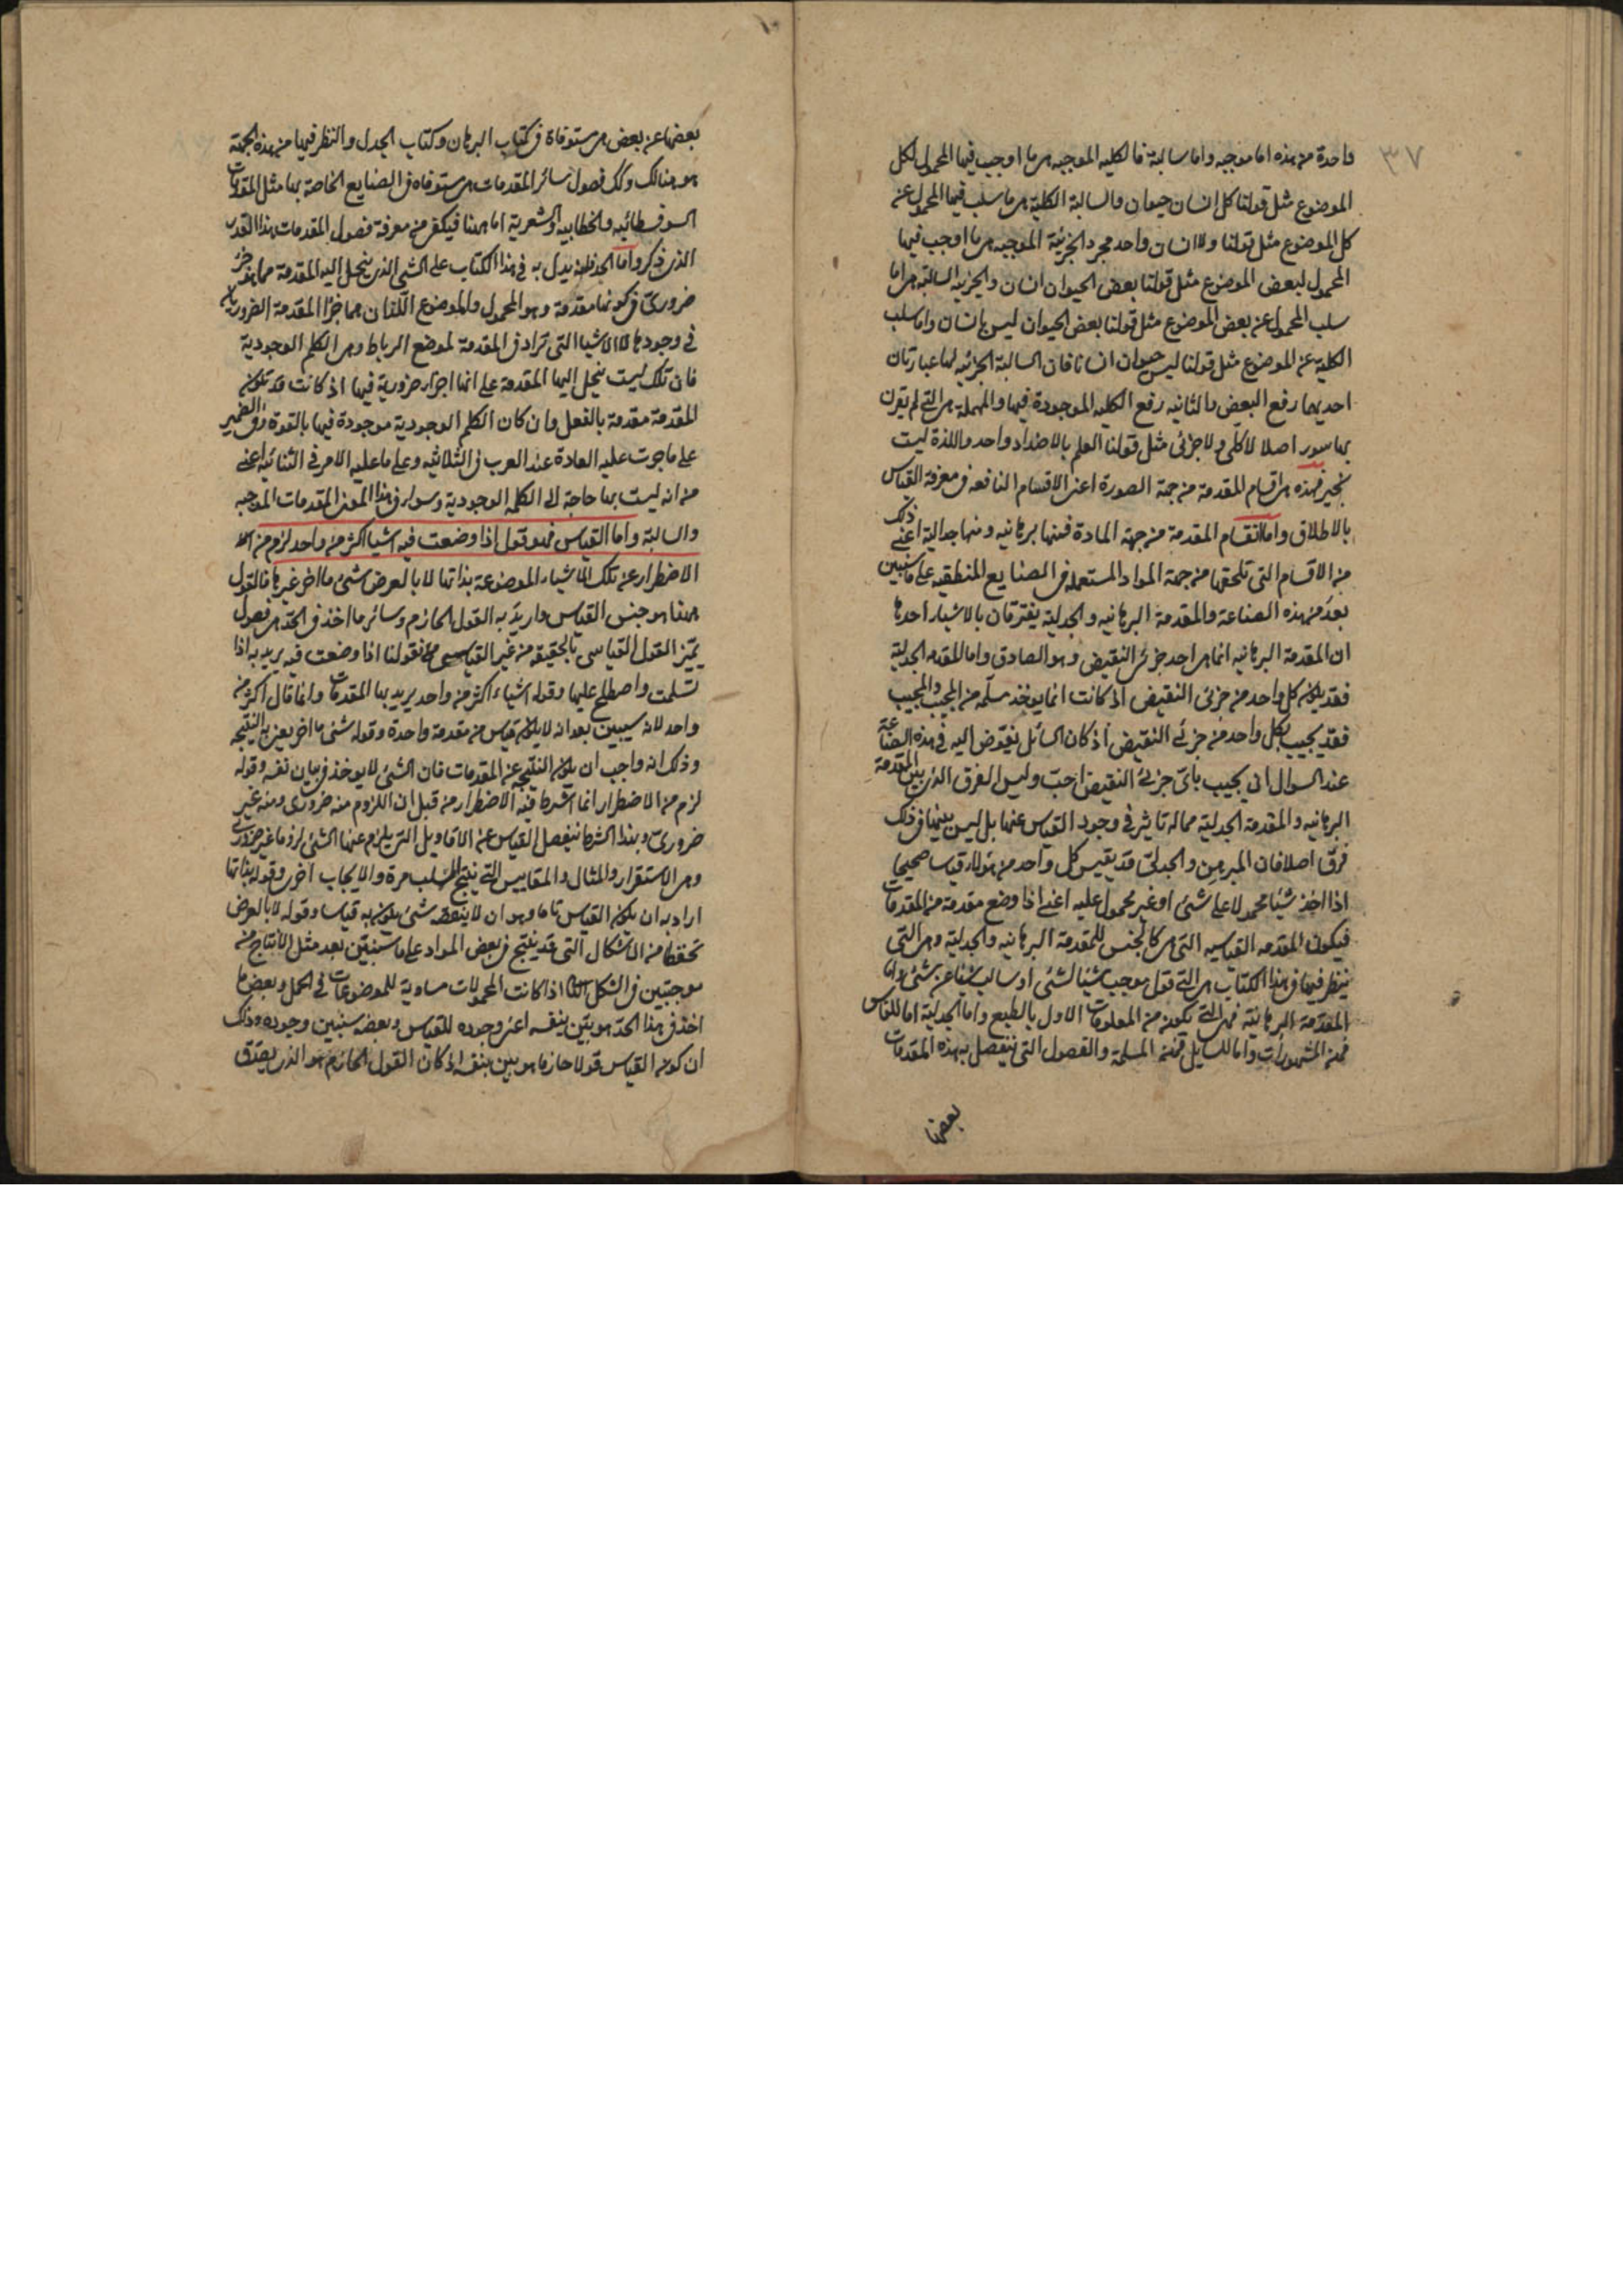 ٣٧
واحدة من هذه اما موجبه واما سالبة فالكليه الموجبه هى ما اوجب فيها المحمول لكل
الموضوع مثل قولنا كل انسان حيوان والسالبة الكلية هى ما سلب فيها المحمول عن
كل الموضوع مثل قولنا ولا انسان واحد حجر والجزئية الموجبه هى ما اوجب فيها
المحمول لبعض الموضوع مثل قولنا بعض الحيوان انسان والجزئيه السالبة هى اما
سلب المحمول عن بعض الموضوع مثل قولنا بعض الحيوان ليس بانسان واما سلب
الكلية عن الموضوع مثل قولنا ليس حيوان انسانا فان السالبة الجزئيه لها عبارتان
احديهما رفع البعض والثانيه رفع الكليه الموجودة فيها والمهملة هى التى لم يقرن
بها سور اصلا لا كلى ولا جزئى مثل قولنا العلم بالاضداد واحد واللذة ليست
بخير فهذه هى اقسام المقدمة من جهة الصورة اعنى الاقسام النافعه فى معرفة القياس
بالاطلاق واما انقسام المقدمة من جهة المادة فمنها برهانيه ومنها جدلية اعنى ذلك
من الاقسام التى تلحقها من جهة المواد المستعمله فى الصنايع المنطقيه على ما سنبين
بعد من هذه الصناعة والمقدمة البرهانيه والجدلية يفترقان بالاشياء احدها
ان المقدمة البرهانيه انما هى احد جزئى النقيض وهو الصادق واما المقدمه الجدلية
فقد يكون كل واحد من جزئى النقيض اذ كانت انما يوخذ مسلمه من المجيب والمجيب
فقد يجيب بكل واحد من جزئى النقيض اذ كان السائل يفوض اليه فى هذه الصناعة
عند السوال ان يجيب باى جزئى النقيض احب وليس الفرق الذى بين المقدمة
البرهانيه والمقدمة الجدلية مماله تاثير فى وجود القياس عنهما بل ليس بينهما فى ذلك
فرق اصلا فان المبرهن والجدلى قد يقيس كل واحد من هولاء قياسا صحيحا
اذا اخذ شيئا محمولا على شئ او غير محمول عليه اعنى اذا وضع مقدمة من المقدمات
فيكون المقدمه القياسيه التى هى كالجنس للمقدمة البرهانيه والجدلية وهى التى
ينظر فيها فى هذا الكتاب هى التى قول موجب شيئا لشئ او سالب شيئا عن شئ واما
المقدمة البرهانية فهى التى يكون من المعلومات الاول بالطبع واما الجدلية اما للقايس
فمن المشهورات واما للسايل فمن المسلمة والفصول التى ينفصل بهذه المقدمات
بعضها
بعضها عن بعض هى مستوفاة فى كتاب البرهان وكتاب الجدل والنظر فيها من هذه الجهة
هو هنالك وكذلك فصول سائر المقدمات هى مستوفاه فى الصنايع الخاصة بها مثل المقدمات
السوفسطائيه والخطابيه والشعرية اما ههنا فيكفى من معرفة فصول المقدمات هذا القدر
الذى ذكر واما الحد فانه يدل به فى هذا الكتاب على الشئ الذى ينحل اليه المقدمة مما هو جزء
ضرورى فى كونها مقدمة وهو المحمول والموضوع اللذان هما جزءا المقدمة الضروريان
فى وجودها لا الاشياء التى تزاد فى المقدمة لموضع الرباط وهى الكلم الوجودية
فان تلك ليست ينحل اليها المقدمة على انها اجزاء ضرورية فيها اذ كانت قد تكون
المقدمة مقدمة بالفعل وان كان الكلم الوجودية موجودة فيها بالقوة وفى الضمير
على ما جرت عليه العادة عند العرب فى الثلاثيه وعلى ما عليه الامر فى الثنائيه اعنى
من انه ليست بها حاجة الى الكلمه الوجودية وسواء فى هذا المعنى المقدمات الموجبه
والسالبة واما القياس فهو قول اذا وضعت فيه اشيا اكثر من واحد لزم من الا
الاضطرار عن تلك الاشياء الموضوعة بذاتها لا بالعرض شئ ما اخر غيرها فالقول
ههنا هو جنس القياس واريد به القول الجازم وسائر ما اخذ فى الحد هى فصول
يميز القول القياسى بالحقيقه من غير القياسى فقولنا اذا وضعت فيه يريد به اذا
تسلمت واصطلح عليها وقوله اشياء اكثر من واحد يريد بها المقدمات وانما قال اكثر من
واحد لانه سيبين بعد انه لا يكون قياس من مقدمة واحدة وقوله شئ ما اخر يعنى به النتيجه
وذلك انه واجب ان يكون النتيجه غير المقدمات فان الشئ لا يوخذ فى بيان نفسه وقوله
لزم من الاضطرار انما اشترط فيه الاضطرار من قبل ان اللزوم منه ضرورى ومنه غير
ضرورى وبهذا الشرط ينفصل القياس عن الاقاويل التى يلزم عنها الشئ لزوما غير ضرورى
وهى الاستقراء والمثال والمقاييس التى ينتج السلب مرة والايجاب اخرى وقوله بذاتها
اراد به ان يكون القياس تاما وهو ان لا ينقصه شئ يكون به قياسا وقوله لا بالعرض
تحفظا من الاشكال التى قد ينتج فى بعض المواد على ما سنبين بعد مثل الانتاج من
موجبتين فى الشكل الثانى اذا كانت المحمولات مساوية للموضوعات فى الحمل وبعض ما
اخذ فى هذا الحد هو بيّن بنفسه اعنى وجوده للقياس وبعضه سنبين وجوده وذلك
ان كون القياس قولا جازما هو بين بنفسه اذ كان القول الجازم هو الذى يصدق